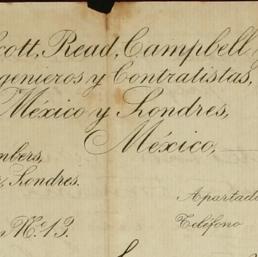 cott, Read, Campbell
genieros y Contratistas,
México y Londres,
México,
mbers,
Londres.
Apartado
Nº 13.
Teléfono